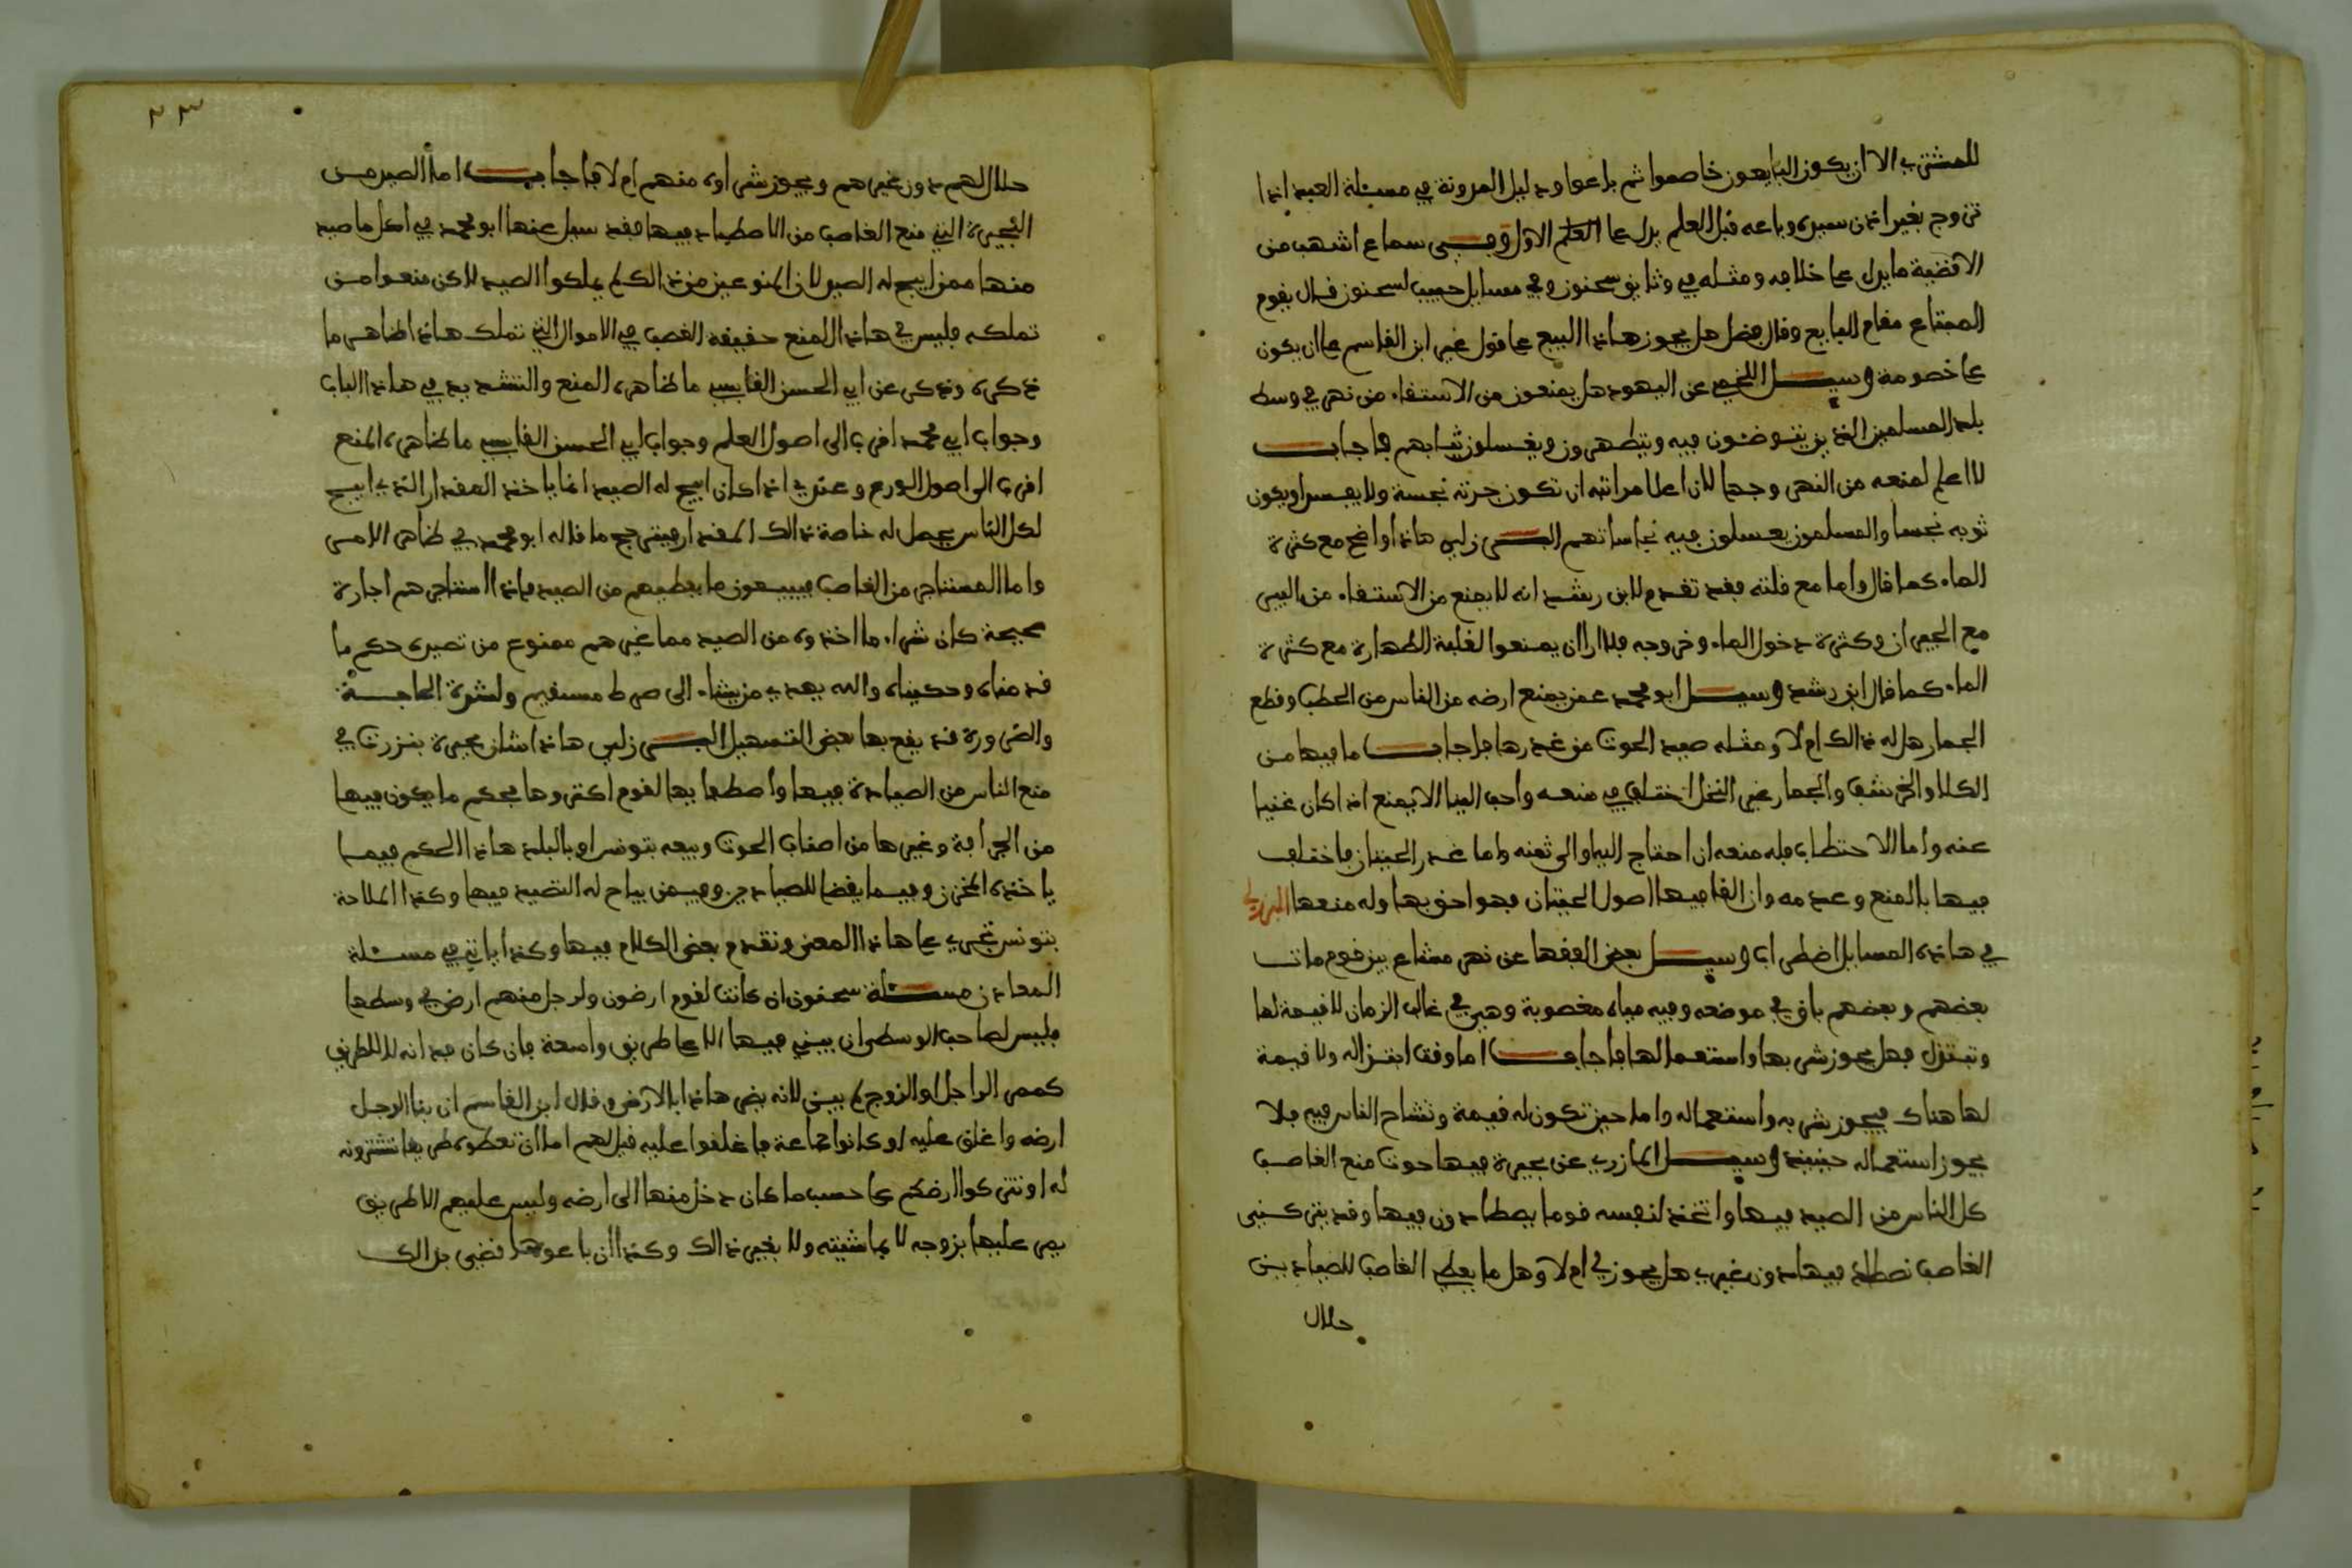 للمشتري الا ان يكون البايعون خاصموا ثم باعوا ودليل المدونة في مسئلة العبد اذا
تزوج بغير اذن سيده وباعه قبل العلم يدل على العلم الاول وفي سماع اشهب من
الاقضية ما يدل على خلافه ومثله في وثايق سحنون وفي مسايل حبيب لسحنون قال يقوم
المبتاع مقام البايع وقال فضل هل يجوز هاذا البيع على قول غير ابن القاسم على ان يكون
على خصومة وسيل اللخمي عن اليهود هل يمنعون من الاستقاء من نهر في وسط
بلد المسلمين الذين يتوضئون فيه ويتطهرون ويغسلون ثيابهم فاجاب
لا اعلم لمنعه من النهر وجها لان اعلا مراتبه ان تكون جرته نجسة ولا يغسل او يكون
ثوبه نجسا والمسلمون يغسلون فيه نجاساتهم البرزلي هاذا واضح مع كثرة
الماء كما قال واما مع قلته فقد تقدم لابن رشد انه لا يمنع من الاستقاء من البير
مع الجيران وكثرة دخول الماء وخروجه فلا ارا ان يمنعوا لغلبة الطهارة مع كثرة
الماء كما قال ابن رشد وسيل ابو محمد عمن يمنع ارضه من الناس من الحطب وقطع
الجمار هل له ذالك ام لا ومثله صيد الحوت من غدرها فاجاب ما فيها من
الكلا والخرشف والجمار غير النخل اختلف في منعه واحب الينا الا يمنع اذا كان غنيا
عنه واما الاحتطاب فله منعه ان احتاج اليه او الى ثمنه واما غدر الحيتان فاختلف
فيها بالمنع وعدمه وان القا فيها اصول الحيتان فهو احق بها وله منعها البرزلي
في هاذه المسايل اضطراب وسيل بعض الفقها عن نهر مشاع بين قوم مات
بعضهم وبعضهم باق في موضعه وفيه مياه مغصوبة وهي في غالب الزمان لا قيمة لها
وتبتذل فهل يجوز شربها واستعمالها فاجاب اما وقت ابتذاله ولا قيمة
لها هناك فيجوز شربه واستعماله واما حين تكون له قيمة وتشاح الناس فيه فلا
يجوز استعماله حينيذ وسيل المازري عن بحيرة فيها حوت منع الغاصب
كل الناس من الصيد فيها واتخذ لنفسه قوما يصطادون فيها وقد يتركني
الغاصب نصطاد فيها دون غيري هل يجوز لي ام لا وهل ما يعطي الغاصب للصيادين
حلال
٢٣
حلال لهم دون غيرهم ويجوز شراوه منهم ام لا فاجاب اما الصيد من
البحيرة التي منع الغاصب من الاصطياد فيها فقد سيل عنها ابو محمد في اكل ما صيد
منها ممن ابيح له الصيد لان الممنوعين من ذالك لم يملكوا الصيد لاكن منعوا من
تملكه فليس في هاذا المنع حقيقة الغصب في الاموال التي تملك هاذا ظاهر ما
ذكره وذكر عن ابي الحسن القابسي ما ظاهره المنع والتشديد في هاذا الباب
وجواب ابي محمد اقرب الى اصول العلم وجواب ابي الحسن القابسي ما ظاهره المنع
اقرب الى اصول الورع وعندي اذا كان ابيح له الصيد انما ياخذ المقدار الذي ابيح
لكل الناس يحصل له خاصة ذالك المقدار فيترجح ما قاله ابو محمد في ظاهر الامر
واما المستاجر من الغاصب فيبيعون ما يعطيهم من الصيد فاذا استاجرهم اجارة
صحيحة كان شراء ما اخذوه من الصيد مما غيرهم ممنوع من تصيده حكم ما
قدمناه وحكيناه والله يهدي من يشاء الى صرط مستقيم ولشدة الحاجة
والضرورة قد يقع بها بعض التسهيل البرزلي هاذا شان بحيرة بنزرت في
منع الناس من الصيادة فيها واصطيابها لقوم اكتروها فحكم ما يكون فيها
من الجرافة وغيرها من اصناف الحوت وبيعه بتونس او بالبلد هاذا الحكم فيما
ياخذه المخزن وفيما يقضا للصيادين وفيمن يباح له التصيد فيها وكذا الملاحة
بتونس تجري على هاذا المعنى وتقدم بعض الكلام فيها وكذا ياتي في مسئلة
المعادن مسئلة سحنون ان كانت لقوم ارضون ولرجل منهم ارض في وسطها
فليس لصاحب الوسطى ان يبني فيها الا على طريق واسعة فان كان فدانه لا للطريق
كممر الراجل او الزوج لم يبنى لانه يضر هاذا بالارض وقال ابن القاسم ان بنا الرجل
ارضه واغلق عليه او كانوا جماعة فاغلقوا عليه قيل لهم اما ان تعطوه طريقا تشترونه
له او تتركوا ارضكم على حسب ما كان دخل منها الى ارضه وليس عليهم الا طريق
يمر عليها بزوجه لا بماشيته ولا بغير ذالك وكذا ان باعوها قضي بذالك